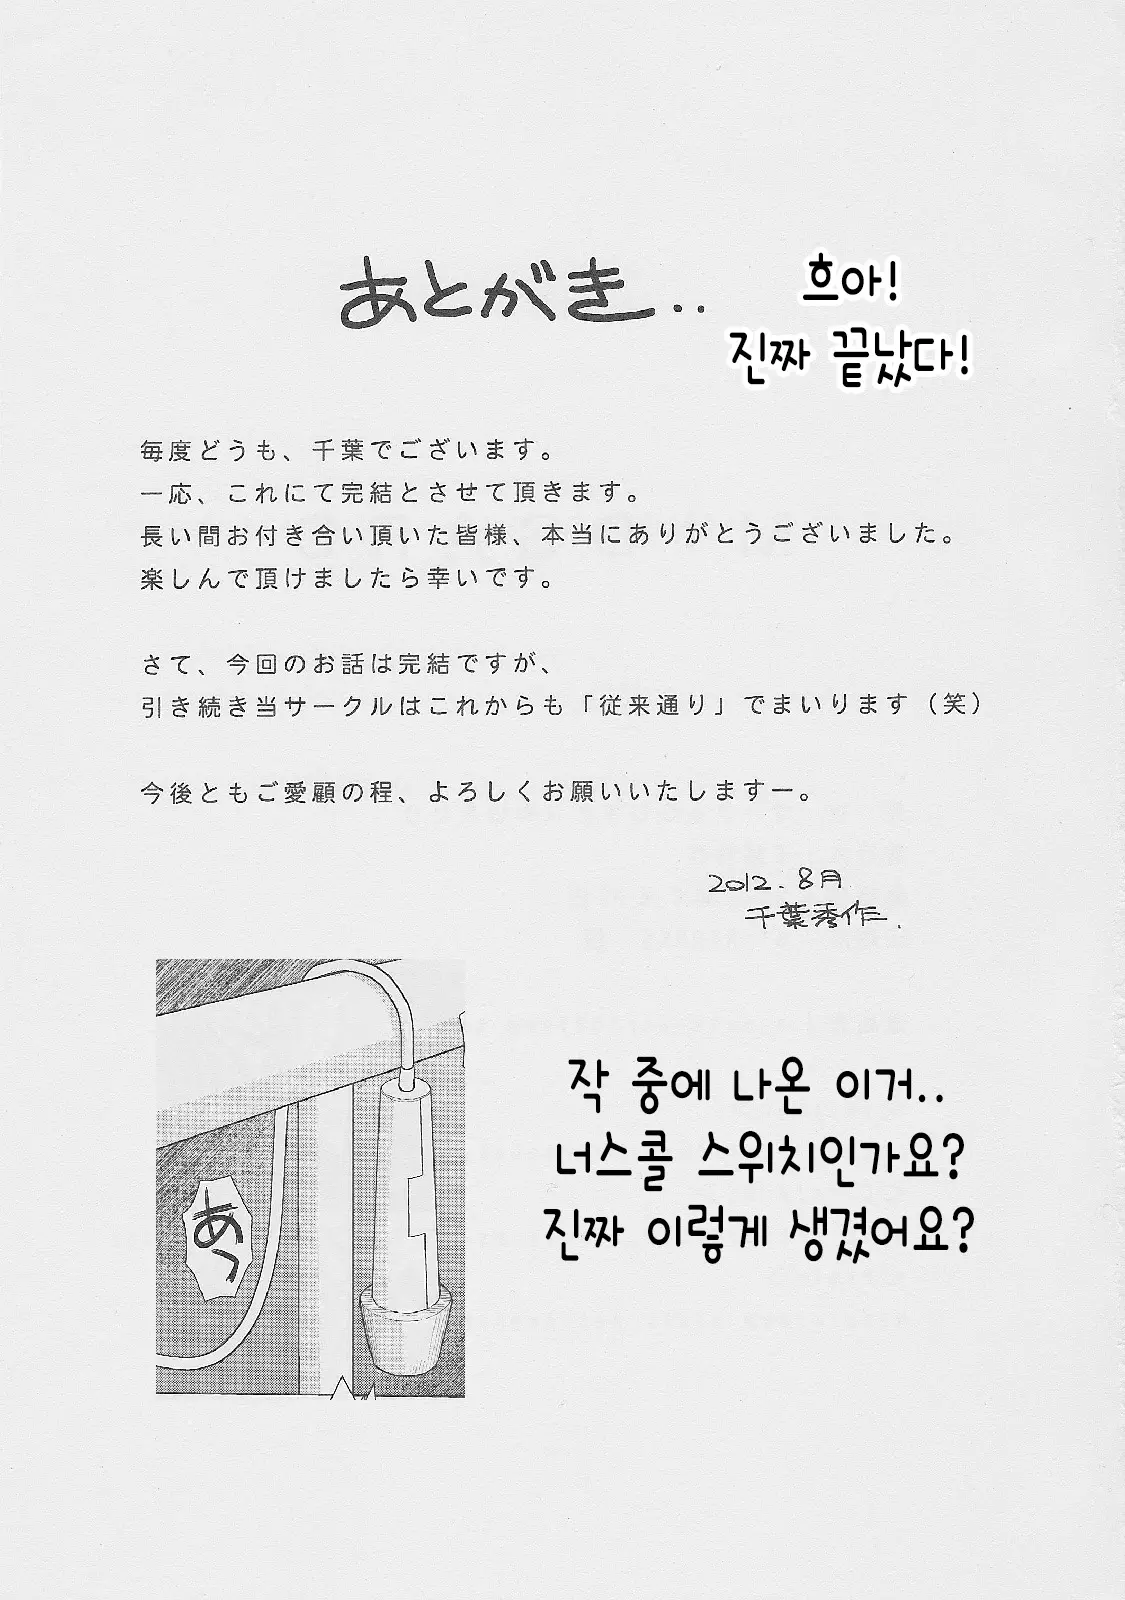 あとがき..
흐아!
진짜 끝났다!
毎度どうも、千葉でございます。
一応、これにて完結とさせて頂きます。
長い間お付き合い頂いた皆様、本当にありがとうございました。
楽しんで頂けましたら幸いです。
さて、今回のお話は完結ですが、
引き続き当サークルはこれからも「従来通り」でまいります（笑）
今後ともご愛顧の程、よろしくお願いいたしますー。
2012.8月
千葉秀作.
작 중에 나온 이거..
너스콜 스위치인가요?
진짜 이렇게 생겼어요?
あっ